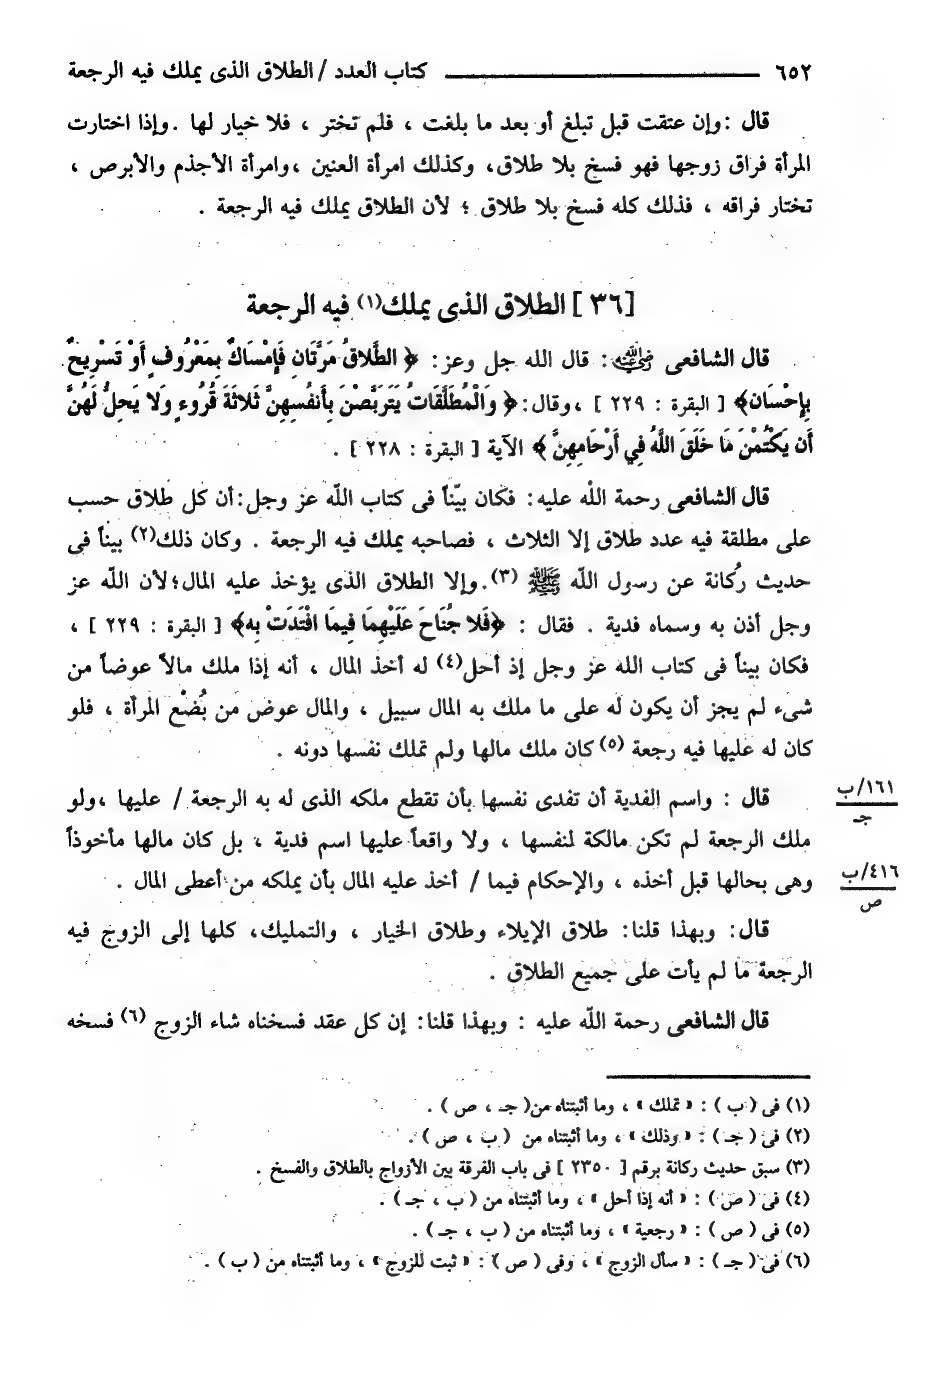 ٦٥٢ كتاب العدد / الطلاق الذى يملك فيه الرجعة
قال : وإن عتقت قبل تبلغ أو بعد ما بلغت ، فلم تختر ، فلا خيار لها . وإذا اختارت
المرأة فراق زوجها فهو فسخ بلا طلاق، وكذلك امرأة العنين ،وامرأة الأجذم والأبرص ،
تختار فراقه ، فذلك كله فسخ بلا طلاق ؛ لأن الطلاق يملك فيه الرجعة .
[٣٦ ] الطلاق الذى يملك(١) فيه الرجعة
قال الشافعى رضي الله عنه : قال الله جل وعز : ﴿ الطَّلاقُ مَرَّتَانِ فَإِمْسَاكٌ بِمَعْرُوفٍ أَوْ تَسْرِيحٌ
بِإِحْسَان﴾ [ البقرة : ٢٢٩ ] ، وقال: ﴿ وَالْمُطَلَّقَاتُ يَتَرَبَّصْنَ بِأَنفُسِهِنَّ ثَلاثَةَ قُرُوءٍ وَلا يَحِلُّ لَهُنَّ
أَن يَكْتُمْنَ مَا خَلَقَ اللَّهُ فِي أَرْحَامِهِنَّ ﴾ الآية [ البقرة : ٢٢٨ ] .
قال الشافعى رحمة الله عليه : فكان بيّناً فى كتاب اللّه عز وجل: أن كل طلاق حسب
على مطلقة فيه عدد طلاق إلا الثلاث ، فصاحبه يملك فيه الرجعة . وكان ذلك(٢) بيناً فى
حديث رُكانة عن رسول اللّه ﷺ (٣). وإلا الطلاق الذى يؤخذ عليه المال؛ لأن اللّه عز
وجل أذن به وسماه فدية . فقال : ﴿فَلا جُنَاحَ عَلَيْهِمَا فِيمَا افْتَدَتْ بِه﴾ [ البقرة : ٢٢٩ ] ،
فكان بيناً فى كتاب الله عز وجل إذ أحل(٤) له أخذ المال ، أنه إذا ملك مالاً عوضاً من
شىء لم يجز أن يكون له على ما ملك به المال سبيل ، والمال عوض من بُضْع المرأة ، فلو
كان له عليها فيه رجعة (٥) كان ملك مالها ولم تملك نفسها دونه .
قال : واسم الفدية أن تفدى نفسها بأن تقطع ملكه الذى له به الرجعة / عليها ،ولو
١٦١/ب
جـ
ملك الرجعة لم تكن مالكة لنفسها ، ولا واقعاً عليها اسم فدية ، بل كان مالها مأخوذاً
وهى بحالها قبل أخذه ، والإحكام فيما / أخذ عليه المال بأن يملكه من أعطى المال .
٤١٦/ب
ص
قال: وبهذا قلنا: طلاق الإيلاء وطلاق الخيار ، والتمليك، كلها إلى الزوج فيه
الرجعة ما لم يأت على جميع الطلاق .
قال الشافعى رحمة اللّه عليه : وبهذا قلنا: إن كل عقد فسخناه شاء الزوج (٦) فسخه
(١) فى ( ب ) : « تملك » ، وما أثبتناه من( جـ ، ص ) .
(٢) فى ( جـ ) : « وذلك » ، وما أثبتناه من ( ب ، ص ) .
(٣) سبق حديث ركانة برقم [ ٢٣٥٠ ] فى باب الفرقة بين الأزواج بالطلاق والفسخ .
(٤) فى ( ص ) : « أنه إذا أحل » ، وما أثبتناه من ( ب ، جـ ) .
(٥) فى ( ص ) : « رجعية » ، وما أثبتناه من ( ب ، جـ ) .
(٦) فى ( جـ ) : « سأل الزوج » ، وفى ( ص ) : « ثبت للزوج » ، وما أثبتناه من ( ب ) .